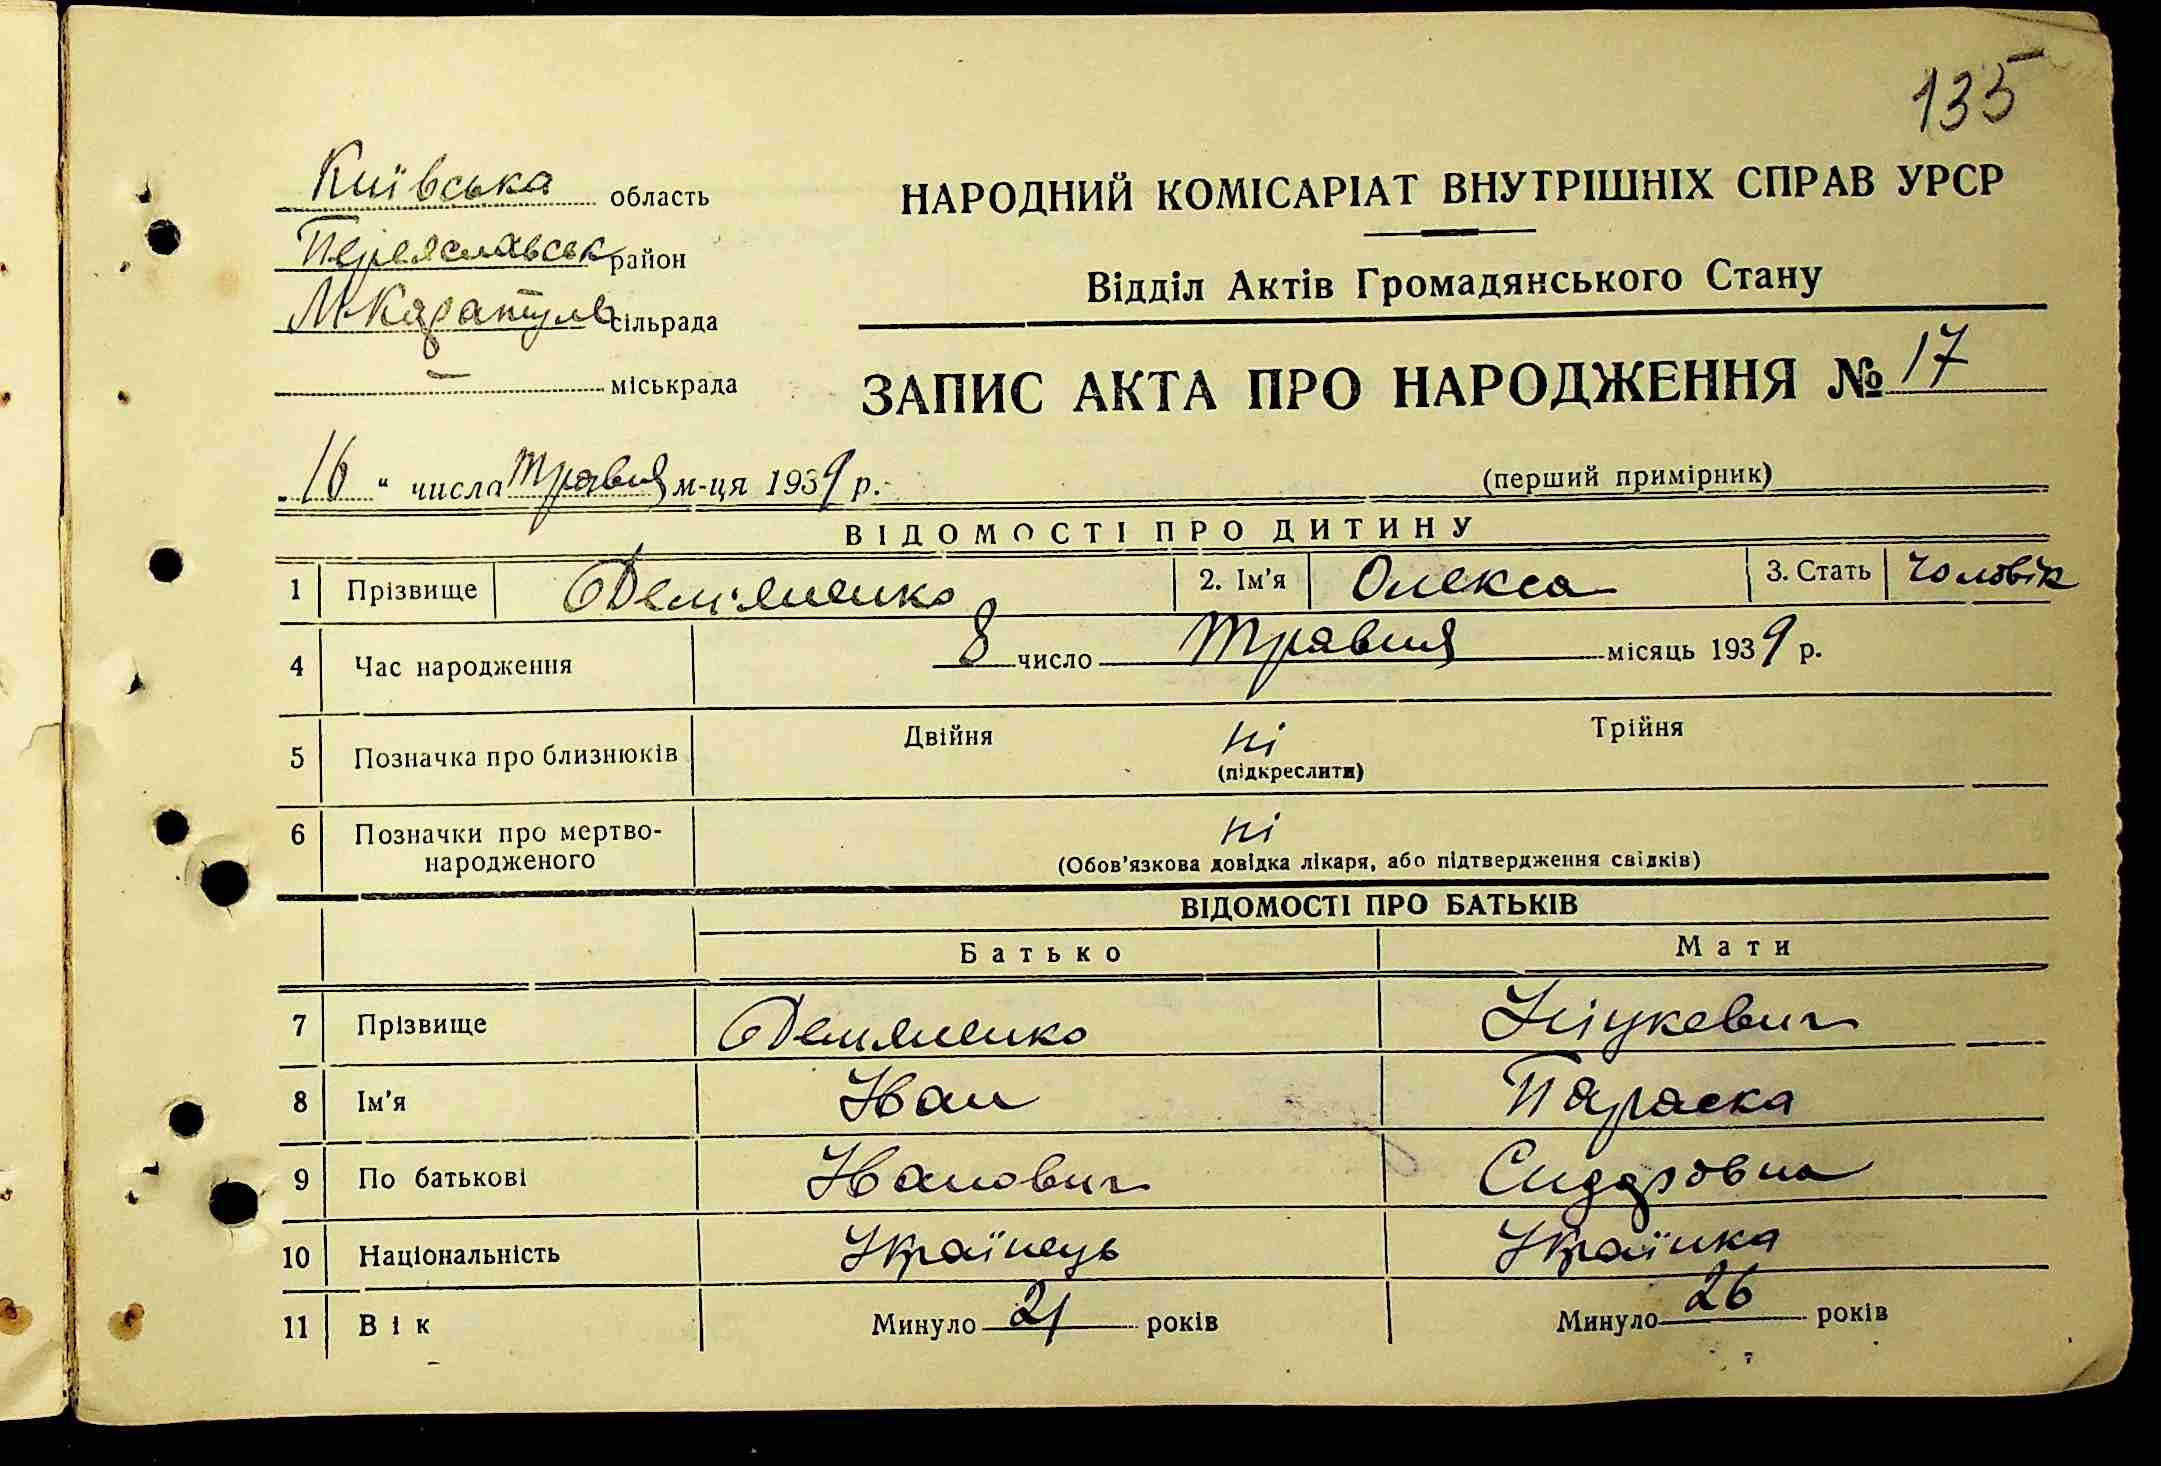 135
Київська область
Переяславськ район
М-Каратуль сільрада
міськрада
НАРОДНИЙ КОМІСАРІАТ ВНУТРІШНІХ СПРАВ УРСР
Відділ Актів Громадянського Стану
ЗАПИС АКТА ПРО НАРОДЖЕННЯ № 17
„16“ числа травня м-ця 1939 р.
(перший примірник)
ВІДОМОСТІ ПРО ДИТИНУ
1 Прізвище Дем'яненко 2. Ім'я Олекса 3. Стать чоловік
4 Час народження 8 число травня місяць 1939 р.
5 Позначка про близнюків Двійня ні Трійня
(підкреслити)
6 Позначки про мертво-
народженого
ні
(Обов'язкова довідка лікаря, або підтвердження свідків)
ВІДОМОСТІ ПРО БАТЬКІВ
Батько Мати
7 Прізвище Демяненко
8 Ім'я Іван Параска
9 По батькові Іванович Сидоровна
10 Національність Українець Українка
11 Вік Минуло 21 років Минуло 26 років